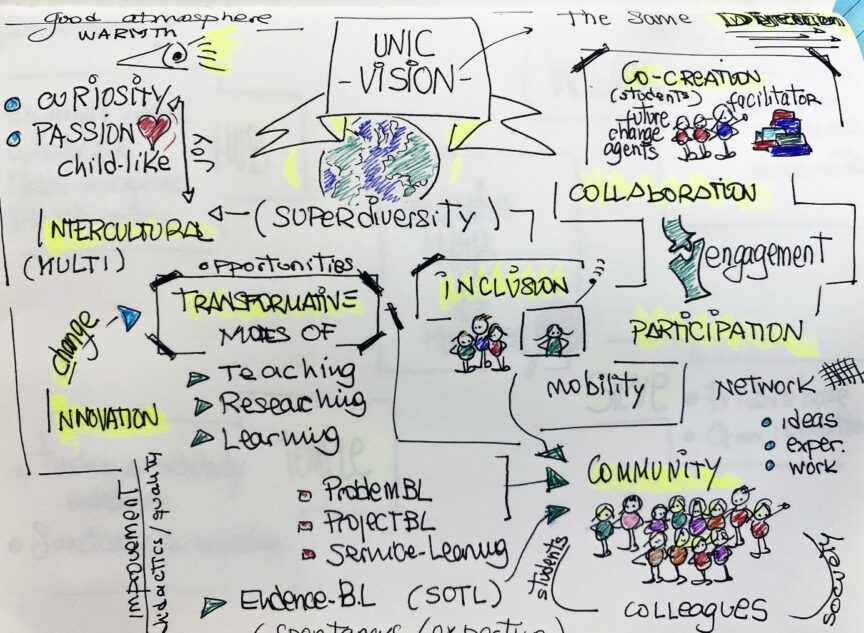 good atmosphere
WARMTH
CURIOSITY
PASSION
child-like
JOY
UNIC
-VISION-
The Same
CO-CREATION
(students)
future
change
agents
facilitator
COLLABORATION
engagement
PARTICIPATION
(SUPERdiversity)
INTERCULTURAL
(MULTI)
opportunities
TRANSFORMATIVE
MODES OF
Teaching
Reseaching
Learning
change
INNOVATION
INCLUSION
mobility
NETWORK
ideas
exper.
work
COMMUNITY
ProblemBL
ProjectBL
Service-Learning
Evidence-B.L (SOTL)
improvement
didactics/quality
students
society
COLLEAGUES